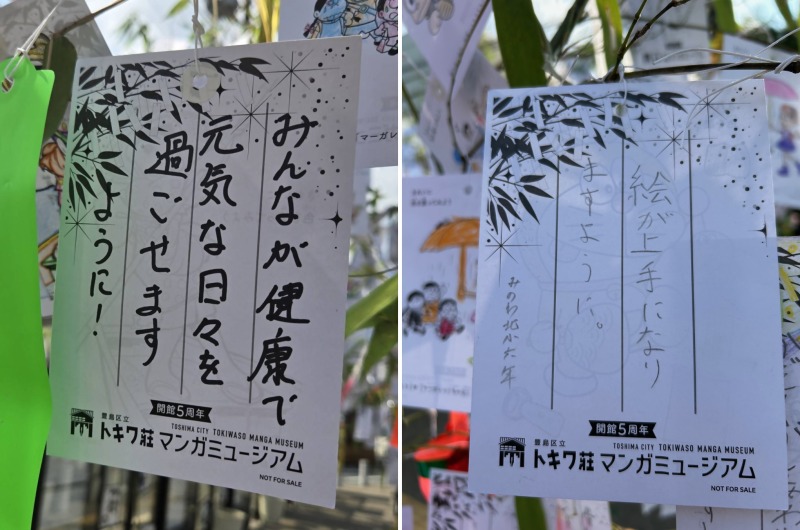 みんなが健康で
元気な日々を
過ごせます
ように!
開館5周年
豊島区立
TOSHIMA CITY TOKIWASO MANGA MUSEUM
トキワ荘マンガミュージアム
NOT FOR SALE
絵が上手になり
ますように。
開館5周年
豊島区立
TOSHIMA CITY TOKIWASO MANGA MUSEUM
トキワ荘マンガミュージアム
NOT FOR SALE